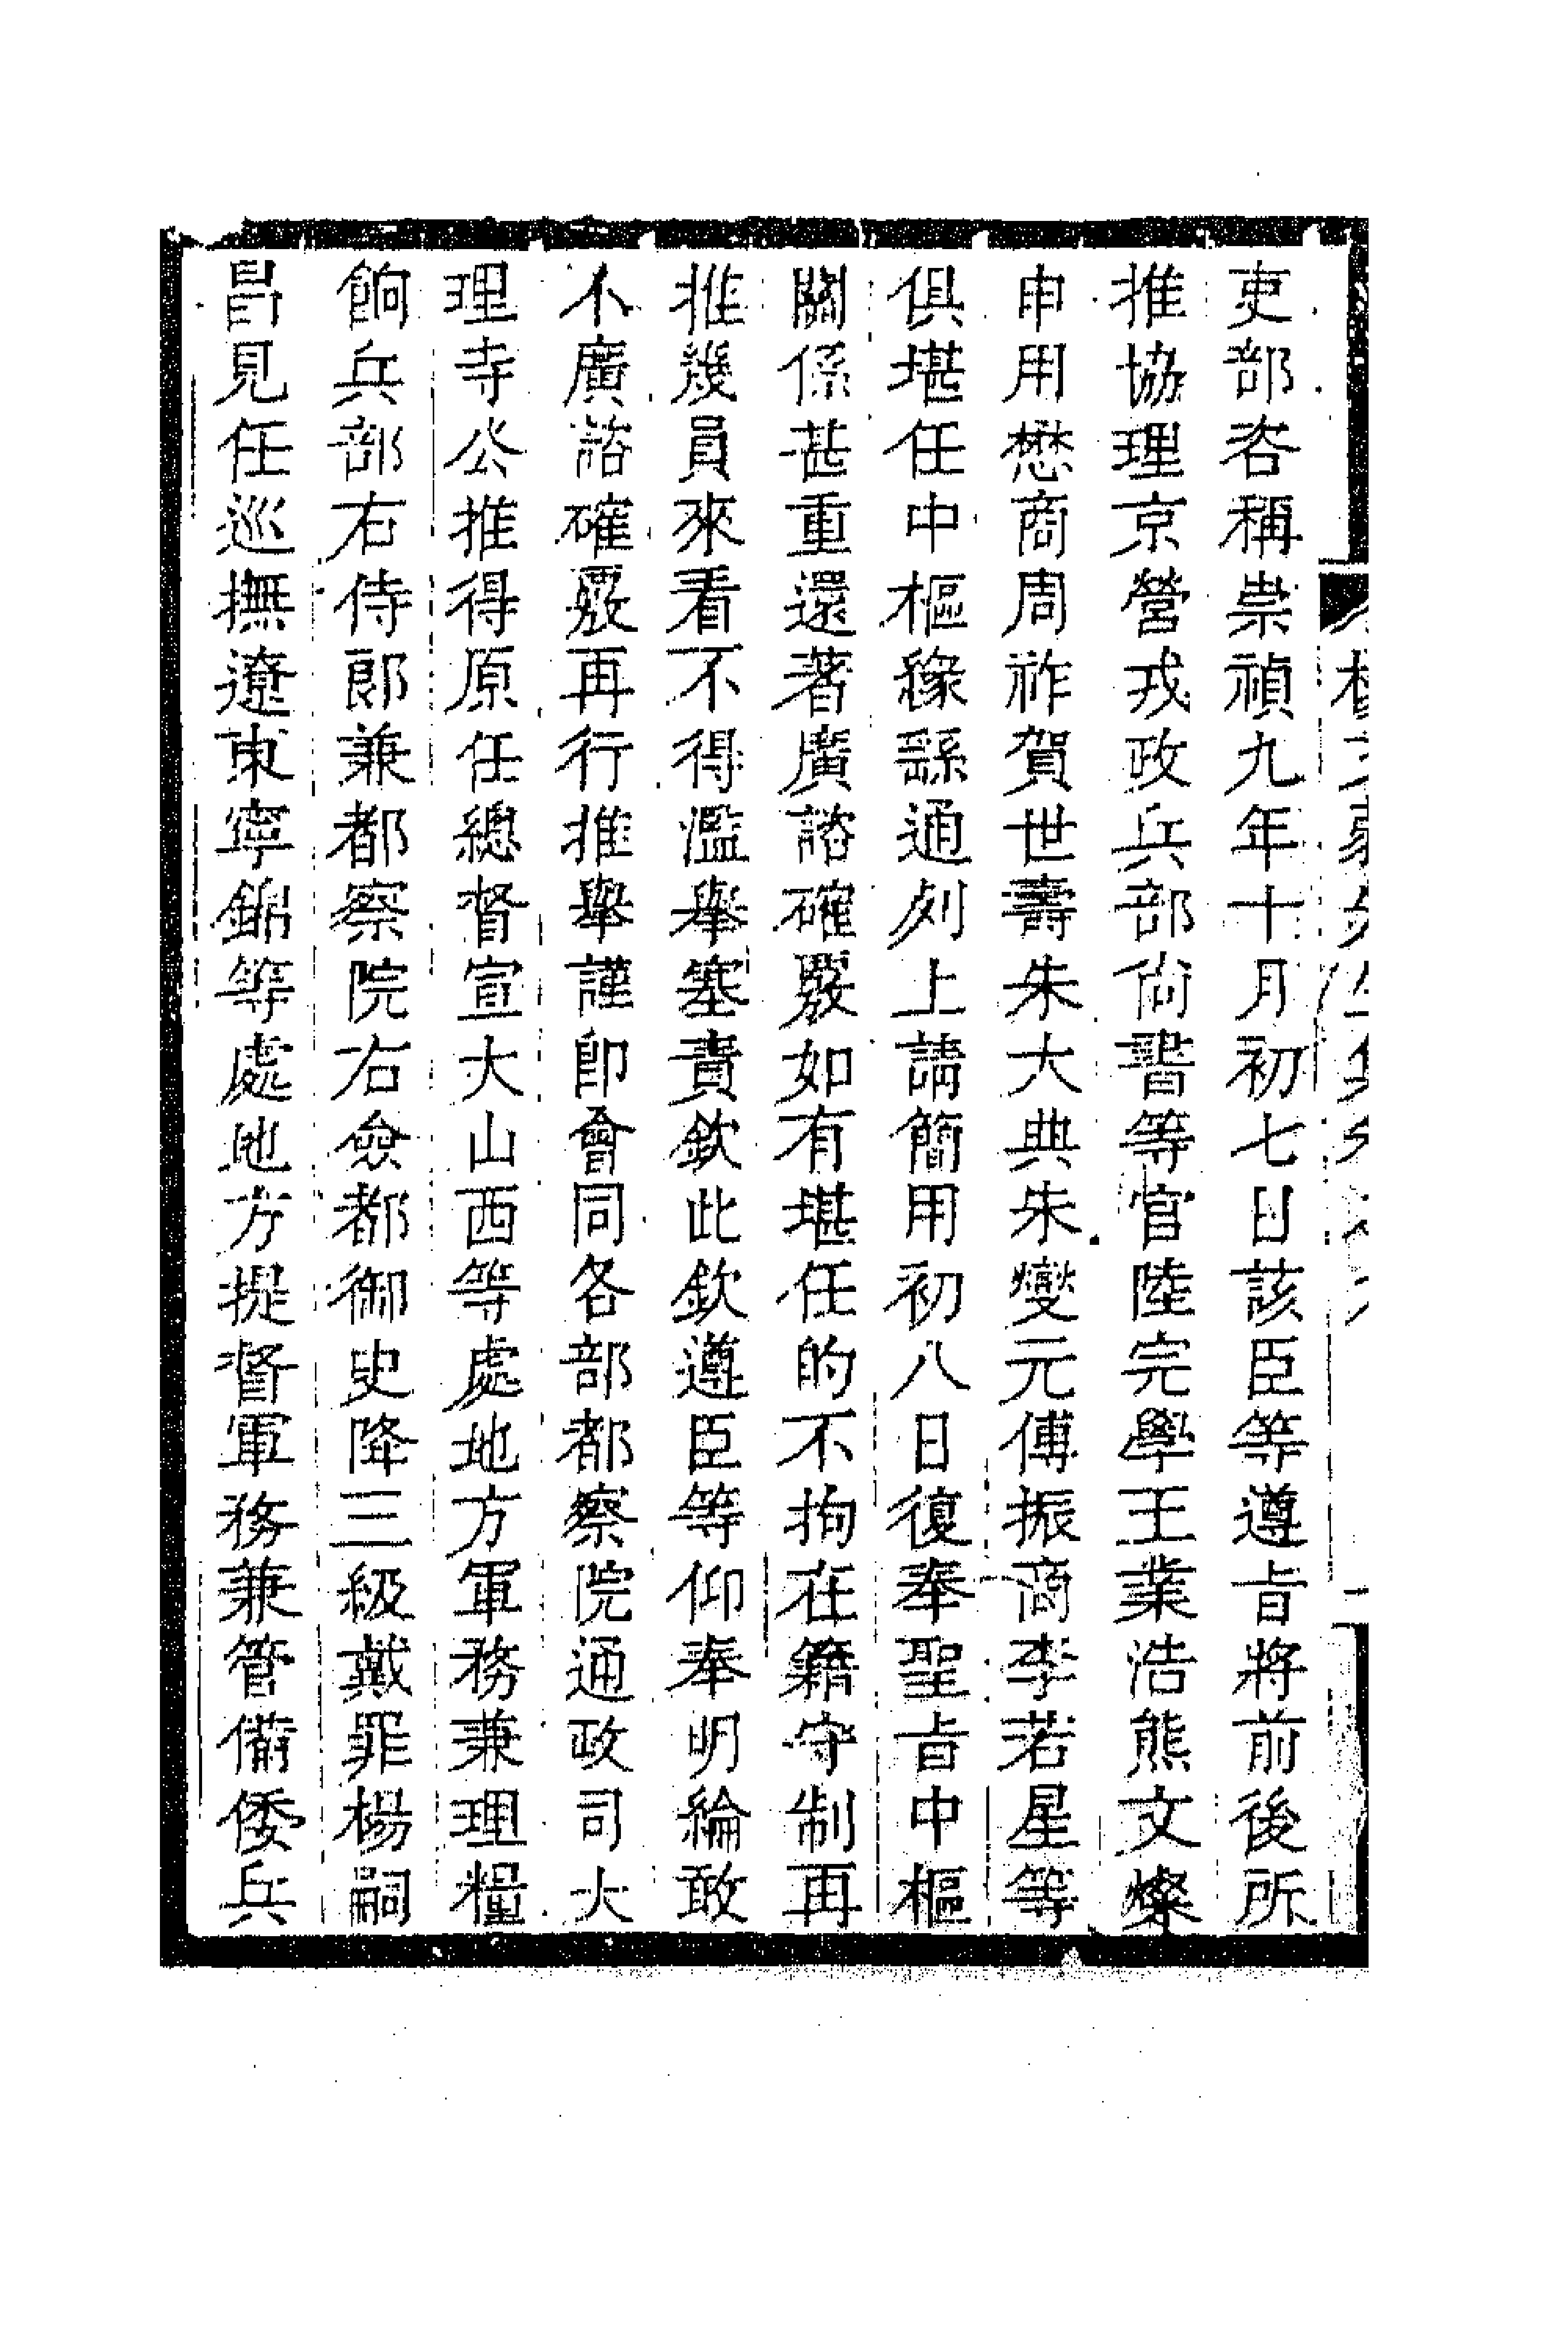 吏部咨稱崇禎九年十月初七日該臣等遵旨將前後所
推協理京營戎政兵部尙書等官陸完學王業浩熊文燦
申用懋商周祚賀世壽朱大典朱燮元傅振商李若星等
俱堪任中樞緣繇通列上請簡用初八日復奉聖旨中樞
關係甚重還著廣諮確覈如有堪任的不拘在籍守制再
推幾員來看不得濫舉塞責欽此欽遵臣等仰奉明綸敢
不廣諮確覈再行推舉謹卽會同各部都察院通政司大
理寺公推得原任總督宣大山西等處地方軍務兼理糧
餉兵部右侍郞兼都察院右僉都御史降三級戴罪楊嗣
昌見任巡撫遼東寧錦等處地方提督軍務兼管備倭兵